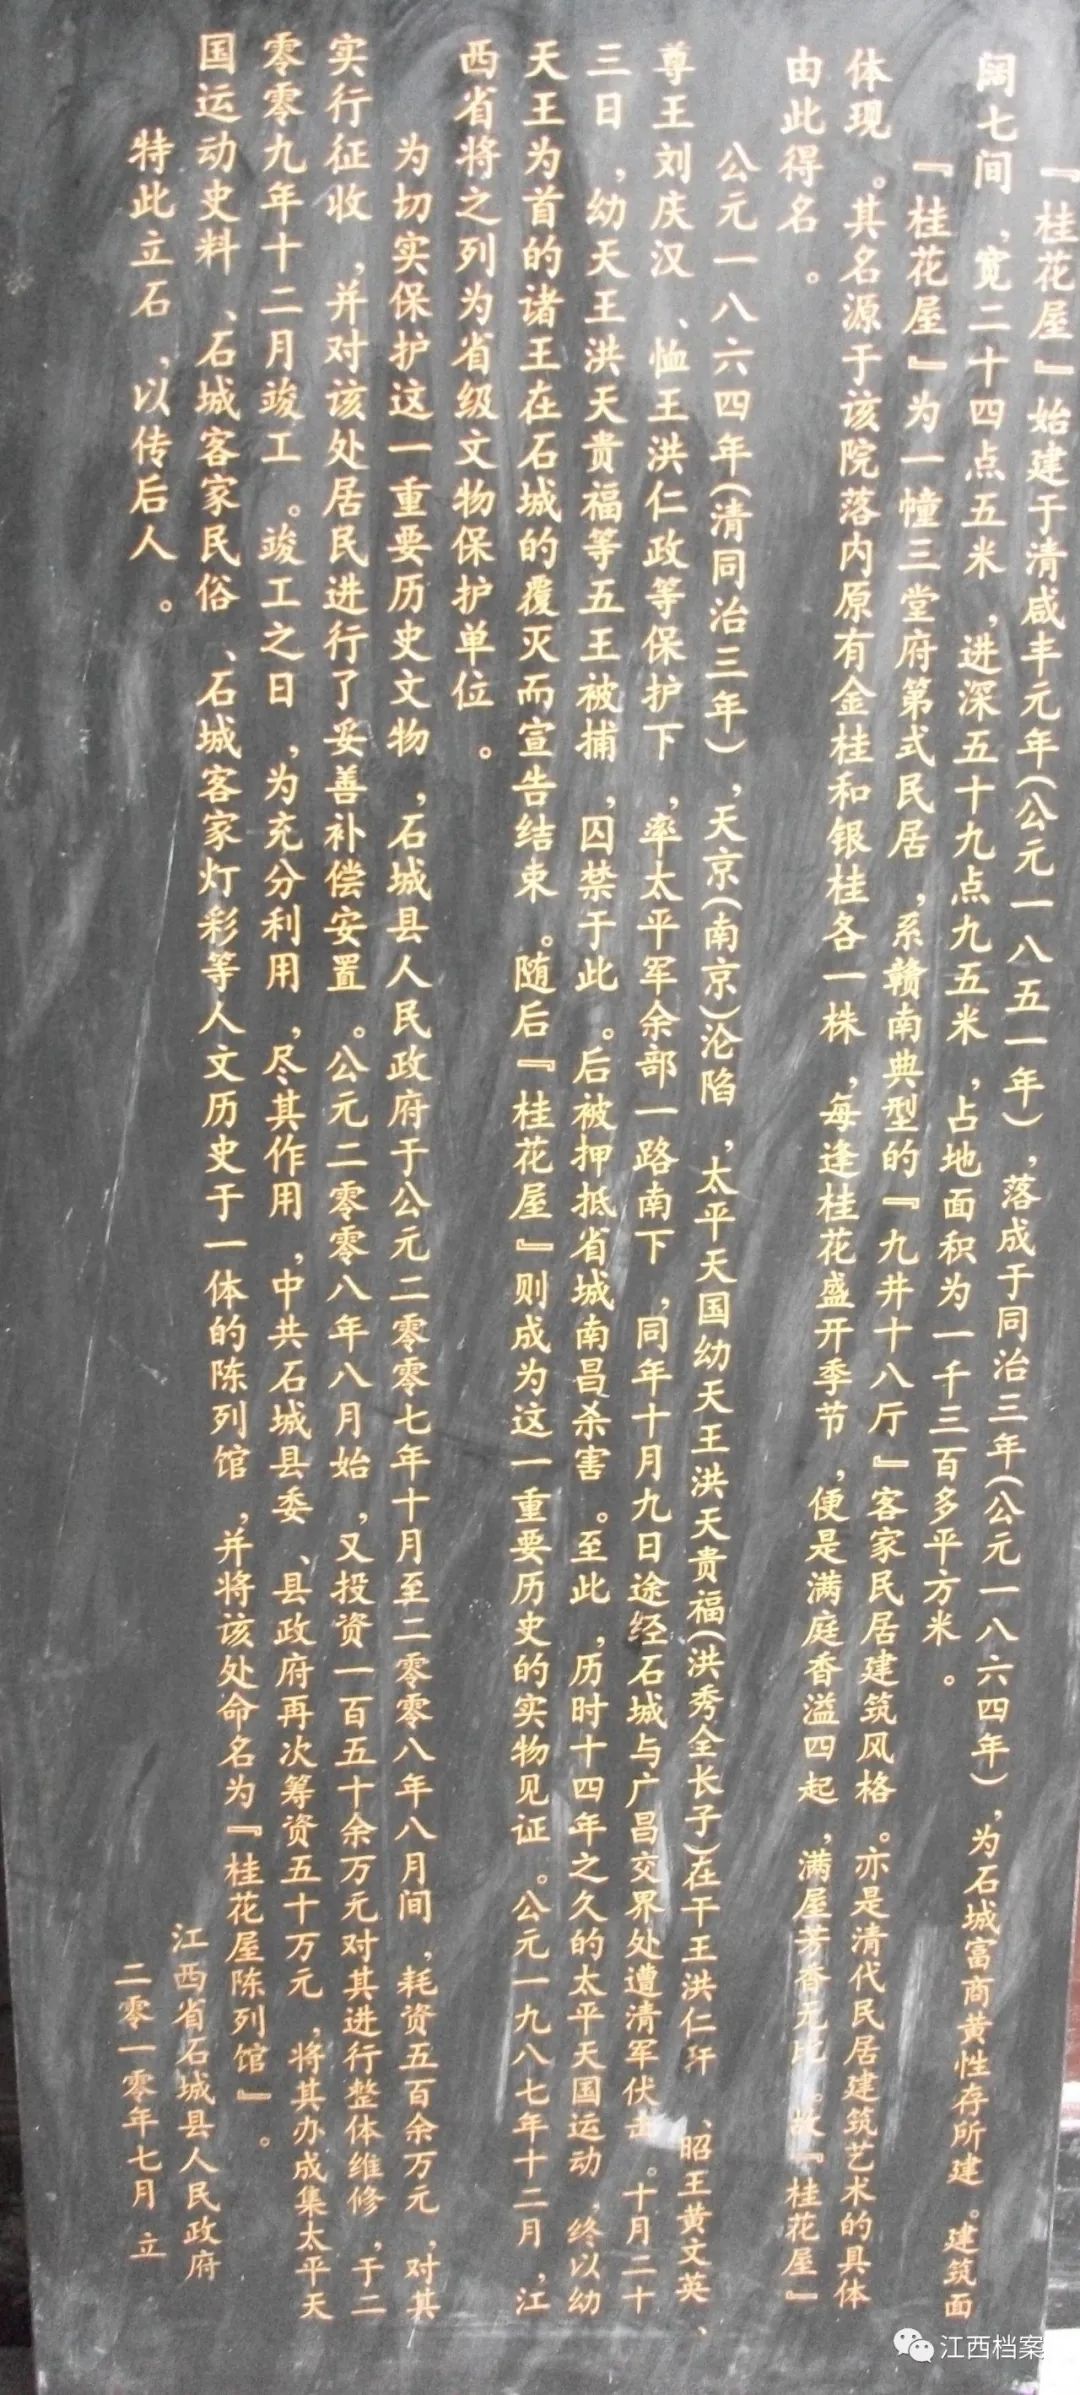 『桂花屋』始建于清咸丰元年(公元一八五一年)，落成于同治三年(公元一八六四年)，为石城富商黄性存所建。建筑面
阔七间，宽二十四点五米，进深五十九点九五米，占地面积为一千三百多平方米。
『桂花屋』为一幢三堂府第式民居，系赣南典型的『九井十八厅』客家民居建筑风格。亦是清代民居建筑艺术的具体
体现。其名源于该院落内原有金桂和银桂各一株，每逢桂花盛开季节，便是满庭香溢四起，满屋芳香无比。故『桂花屋』
由此得名。
公元一八六四年(清同治三年)，天京(南京)沦陷，太平天国幼天王洪天贵福(洪秀全长子)在干王洪仁玕、昭王黄文英、
尊王刘庆汉、恤王洪仁政等保护下，率太平军余部一路南下，同年十月九日途经石城与广昌交界处遭清军伏击。十月二十
三日，幼天王洪天贵福等五王被捕，囚禁于此。后被押抵省城南昌杀害。至此，历时十四年之久的太平天国运动，终以幼
天王为首的诸王在石城的覆灭而宣告结束。随后『桂花屋』则成为这一重要历史的实物见证。公元一九八七年十二月，江
西省将之列为省级文物保护单位。
为切实保护这一重要历史文物，石城县人民政府于公元二零零七年十月至二零零八年八月间，耗资五百余万元，对其
实行征收，并对该处居民进行了妥善补偿安置。公元二零零八年八月始，又投资一百五十余万元对其进行整体维修，于二
零零九年十二月竣工。竣工之日，为充分利用，尽其作用，中共石城县委、县政府再次筹资五十万元，将其办成集太平天
国运动史料、石城客家民俗、石城客家灯彩等人文历史于一体的陈列馆，并将该处命名为『桂花屋陈列馆』。
特此立石，以传后人。
江西省石城县人民政府
二零一零年七月立
江西档案